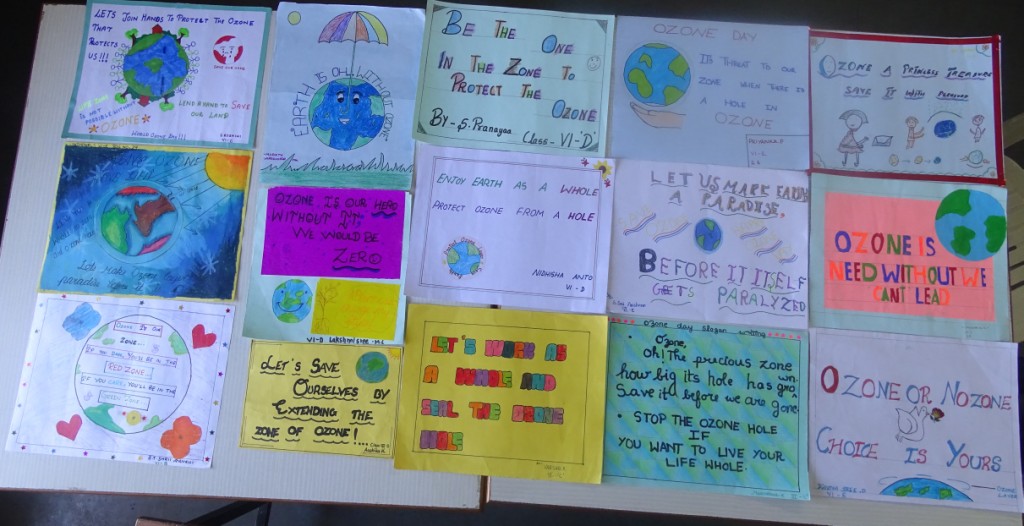 LETS JOIN HANDS TO PROTECT THE OZONE
THAT
PROTECTS
US!!!
LEND A HAND TO SAVE
OUR LAND
OZONE
WORLD OZONE DAY!!!
EARTH IS OH! WITHOUT OZONE
BE THE ONE
IN THE ZONE TO
PROTECT THE
OZONE
BY-S.Pranayaa Class-VI-'D'
OZONE DAY
ITS THREAT TO OUR
ZONE WHEN THERE IS
A HOLE IN
OZONE
OZONE A PRICELESS TREASURE
SAVE IT WITH PLEASURE
OZONE
Lets Make Every
OZONE IS OUR HERO
WITHOUT IT,
WE WOULD BE
ZERO
VI-B Lakshmi
ENJOY EARTH AS A WHOLE
PROTECT OZONE FROM A HOLE
NIDHISHA ANTO
VI-D
LET US MAKE EARTH
A PARADISE,
BEFORE IT ITSELF
GETS PARALYZED
OZONE IS
NEED WITHOUT WE
CANT LEAD
Ozone Is Our
ZONE...
IF YOU DARE, YOU'LL BE IN THE
RED ZONE
IF YOU CARE, YOU'LL BE IN THE
GREEN ZONE
LET'S SAVE
OURSELVES BY
EXTENDING THE
ZONE OF OZONE!....
LET'S WORK AS
A WHOLE AND
SEAL THE OZONE
HOLE
Ozone day slogan writing
• Ozone,
Oh! The precious zone
how big its hole has grown
Save it! before we are gone
• STOP THE OZONE HOLE
IF
YOU WANT TO LIVE YOUR
LIFE WHOLE.
OZONE OR NOZONE
CHOICE IS YOURS
OZONE
LAYER